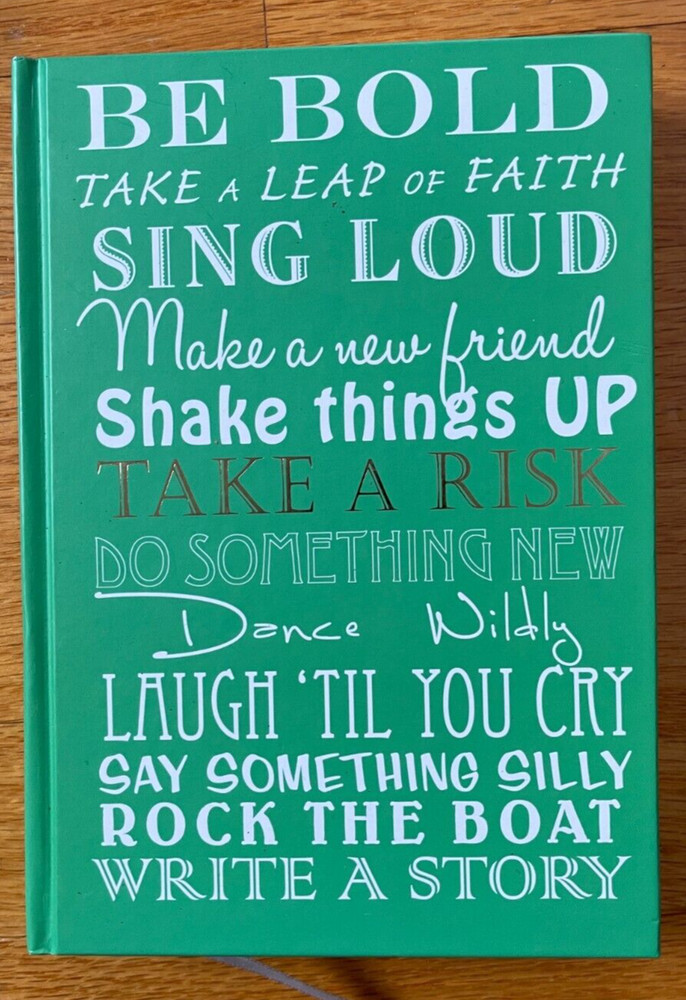 BE BOLD
TAKE A LEAP OF FAITH
SING LOUD
Make a new friend
Shake things UP
TAKE A RISK
DO SOMETHING NEW
Dance Wildly
LAUGH 'TIL YOU CRY
SAY SOMETHING SILLY
ROCK THE BOAT
WRITE A STORY